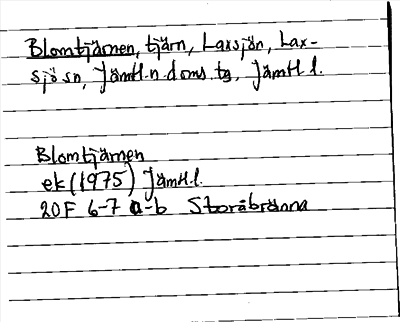 Blomtjärnen, tjärn, Laxsjön, Lax-
sjö sn, Jämtl.n.doms.tg, Jämtl.l.
Blomtjärnen
ek (1975) Jämtl.l.
20F 6-7 a-b Storåbränna